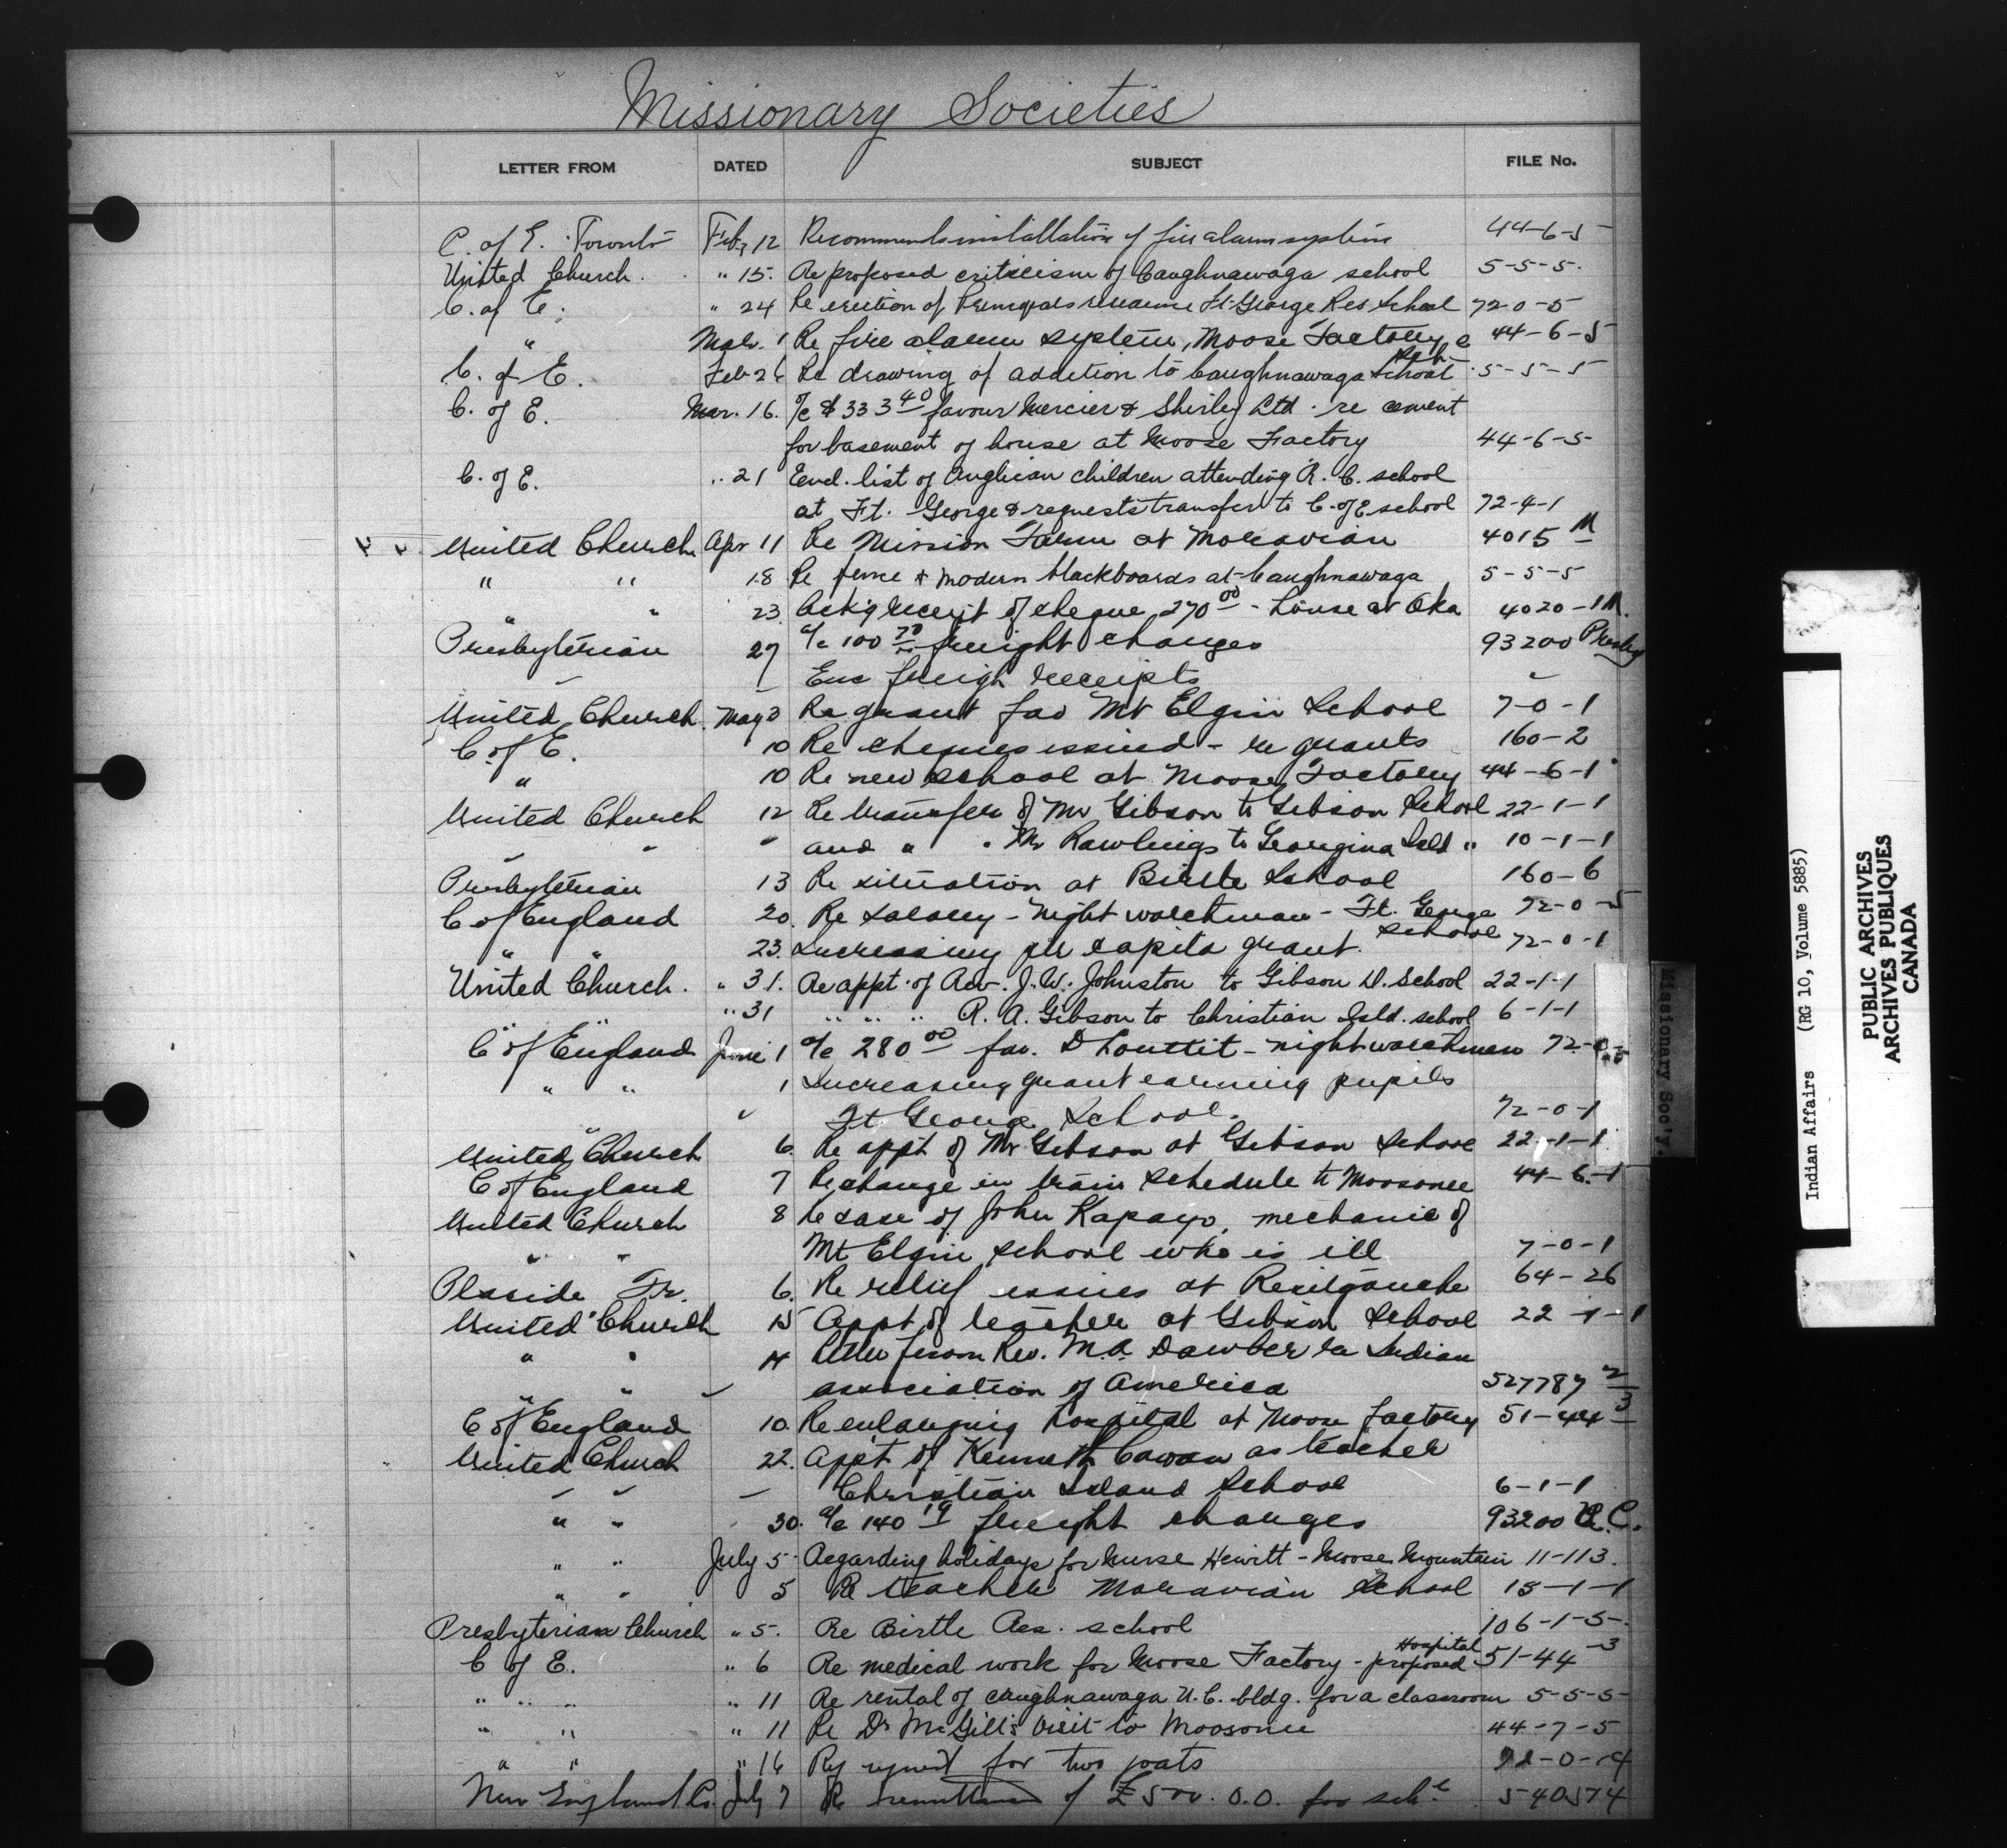 Missionary Societies
LETTER FROM DATED SUBJECT FILE No.
C. of E. Toronto Feb, 12 Recommends installation of fire alarm system 44-6-5
United Church. " 15. Re proposed criticism of Caughnawaga school 5-5-5.
C. of E. " 24 Re erection of Principals residence Ft. George Res School 72-0-5
" Mar. 1 Re fire alarm system, Moose Factory 44-6-5
C. of E. Feb 26 Re drawing of addition to Caughnawaga School 5-5-5
C. of E. Mar. 16. a/c $333 40 favour Mercier & Shirley Ltd. re cement
for basement of house at Moose Factory 44-6-5
C. of E. " 21 Encl. list of Anglican children attending R. C. school
at Ft. George & requests transfer to C. of E. school 72-4-1
United Church Apr 11 Re Mission Farm at Moravian 4015 M
" " 18 Re fence & modern blackboards at Caughnawaga 5-5-5
" " 23. Ack'g receipt of cheque 270 00 - house at Oka 4020-1 M.
Presbyterian 27 a/c 100 70 freight charges 93200 Presby
Enc freigh receipts
United Church. May 3 Re grant fav Mt Elgin School 7-0-1
C. of E. 10 Re cheques issued - re grants 160-2
" 10 Re new school at Moose Factory 44-6-1
United Church 12 Re transfer of Mr Gibson to Gibson School 22-1-1
" " " and " " Mr Rawlings to Georgina Isld " 10-1-1
Presbyterian 13 Re situation at Birtle School 160-6
C of England 20. Re salary - night watchman - Ft. George School 72-0-5
" " 23. Increasing per capita grant. 72-0-1
United Church. " 31. Re appt. of Rev. J. W. Johnston to Gibson D. School 22-1-1
" " " 31 " " " R. A. Gibson to Christian Isld. school 6-1-1
C of England June 1 a/c 280 00 fav. D Louttit - nightwatchman 72-0-5
" " 1 Increasing grant earning pupils
" Ft George School. 72-0-1
United Church 6. Re appt of Mr Gibson at Gibson School 22-1-1
C of England 7 Re change in train schedule to Moosonee 44-6-1
United Church 8 Re case of John Kapayo, mechanic of
" " Mt Elgin School who is ill 7-0-1
Placide Fr. 6. Re relief issues at Restigouche 64-26
United Church 15 Appt of teacher at Gibson School 22-1-1
" " 14 Letter from Rev. M. A. Dawber re Indian
" " association of America 527787 2/3
C of England 10. Re enlarging hospital at Moose factory 51-44-3
United Church 22. App't of Kenneth Cowan as teacher
" " " Christian Island School 6-1-1
" " 30. a/c 140 19 freight charges 93200 U.C.
" " July 5 Regarding holidays for Nurse Hewitt - Moose Mountain 11-113.
" " 5 Re teacher Moravian School 15-1-1
Presbyterian Church " 5. Re Birtle Res. school 106-1-5.
C of E. " 6 Re medical work for Moose Factory - proposed Hospital 51-44-3
" " " " 11 Re rental of Caughnawaga U.C. bldg. for a classroom 5-5-5
" " " 11 Re Dr McGill's visit to Moosonee 44-7-5
" " " 16 for two
New England Co. July 7 Re of £500. 0.0. for sch. 540574
Missionary Soc'y.
Indian Affairs (RG 10, Volume 5885)
PUBLIC ARCHIVES
ARCHIVES PUBLIQUES
CANADA